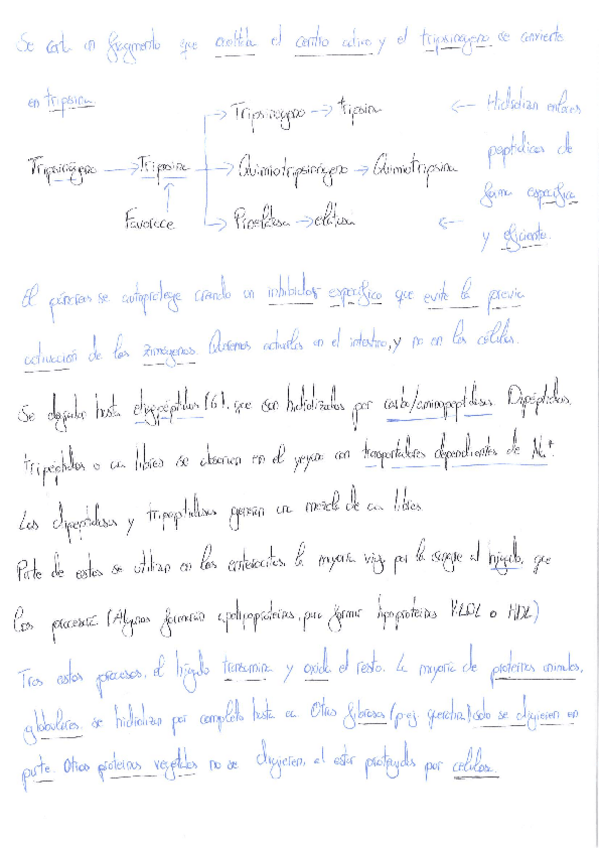 Se corta un fragmento que oculta el centro activo y el tripsinógeno se convierte
en tripsina.
→ Tripsinógeno → tripsina ← Hidrolizan enlaces
peptídicos de
Tripsinógeno → Tripsina → Quimiotripsinógeno → Quimiotripsina
forma específica
Favorece → Proelastasa → elastasa ← y eficiente.
El páncreas se autoprotege creando un inhibidor específico que evite la previa
activación de los zimógenos. Queremos activarlos en el intestino, y no en las células.
Se degradan hasta oligopéptidos (6), que son hidrolizados por carboxi/aminopeptidasas. Dipéptidos,
tripéptidos o aa libres se absorben en el yeyuno con transportadores dependientes de Na⁺.
Las dipeptidasas y tripeptidasas generan una mezcla de aa libres.
Parte de estos se utilizan en los enterocitos, la mayoría viaja por la sangre al hígado, que
los procesará (Algunos formarán apolipoproteínas, para formar lipoproteínas VLDL o HDL)
Tras estos procesos, el hígado transamina y oxida el resto. La mayoría de proteínas animales,
globulares, se hidrolizan por completo hasta aa. Otras fibrosas (p.ej queratina) solo se digieren en
parte. Otras proteínas vegetales no se digieren, al estar protegidas por celulosa.